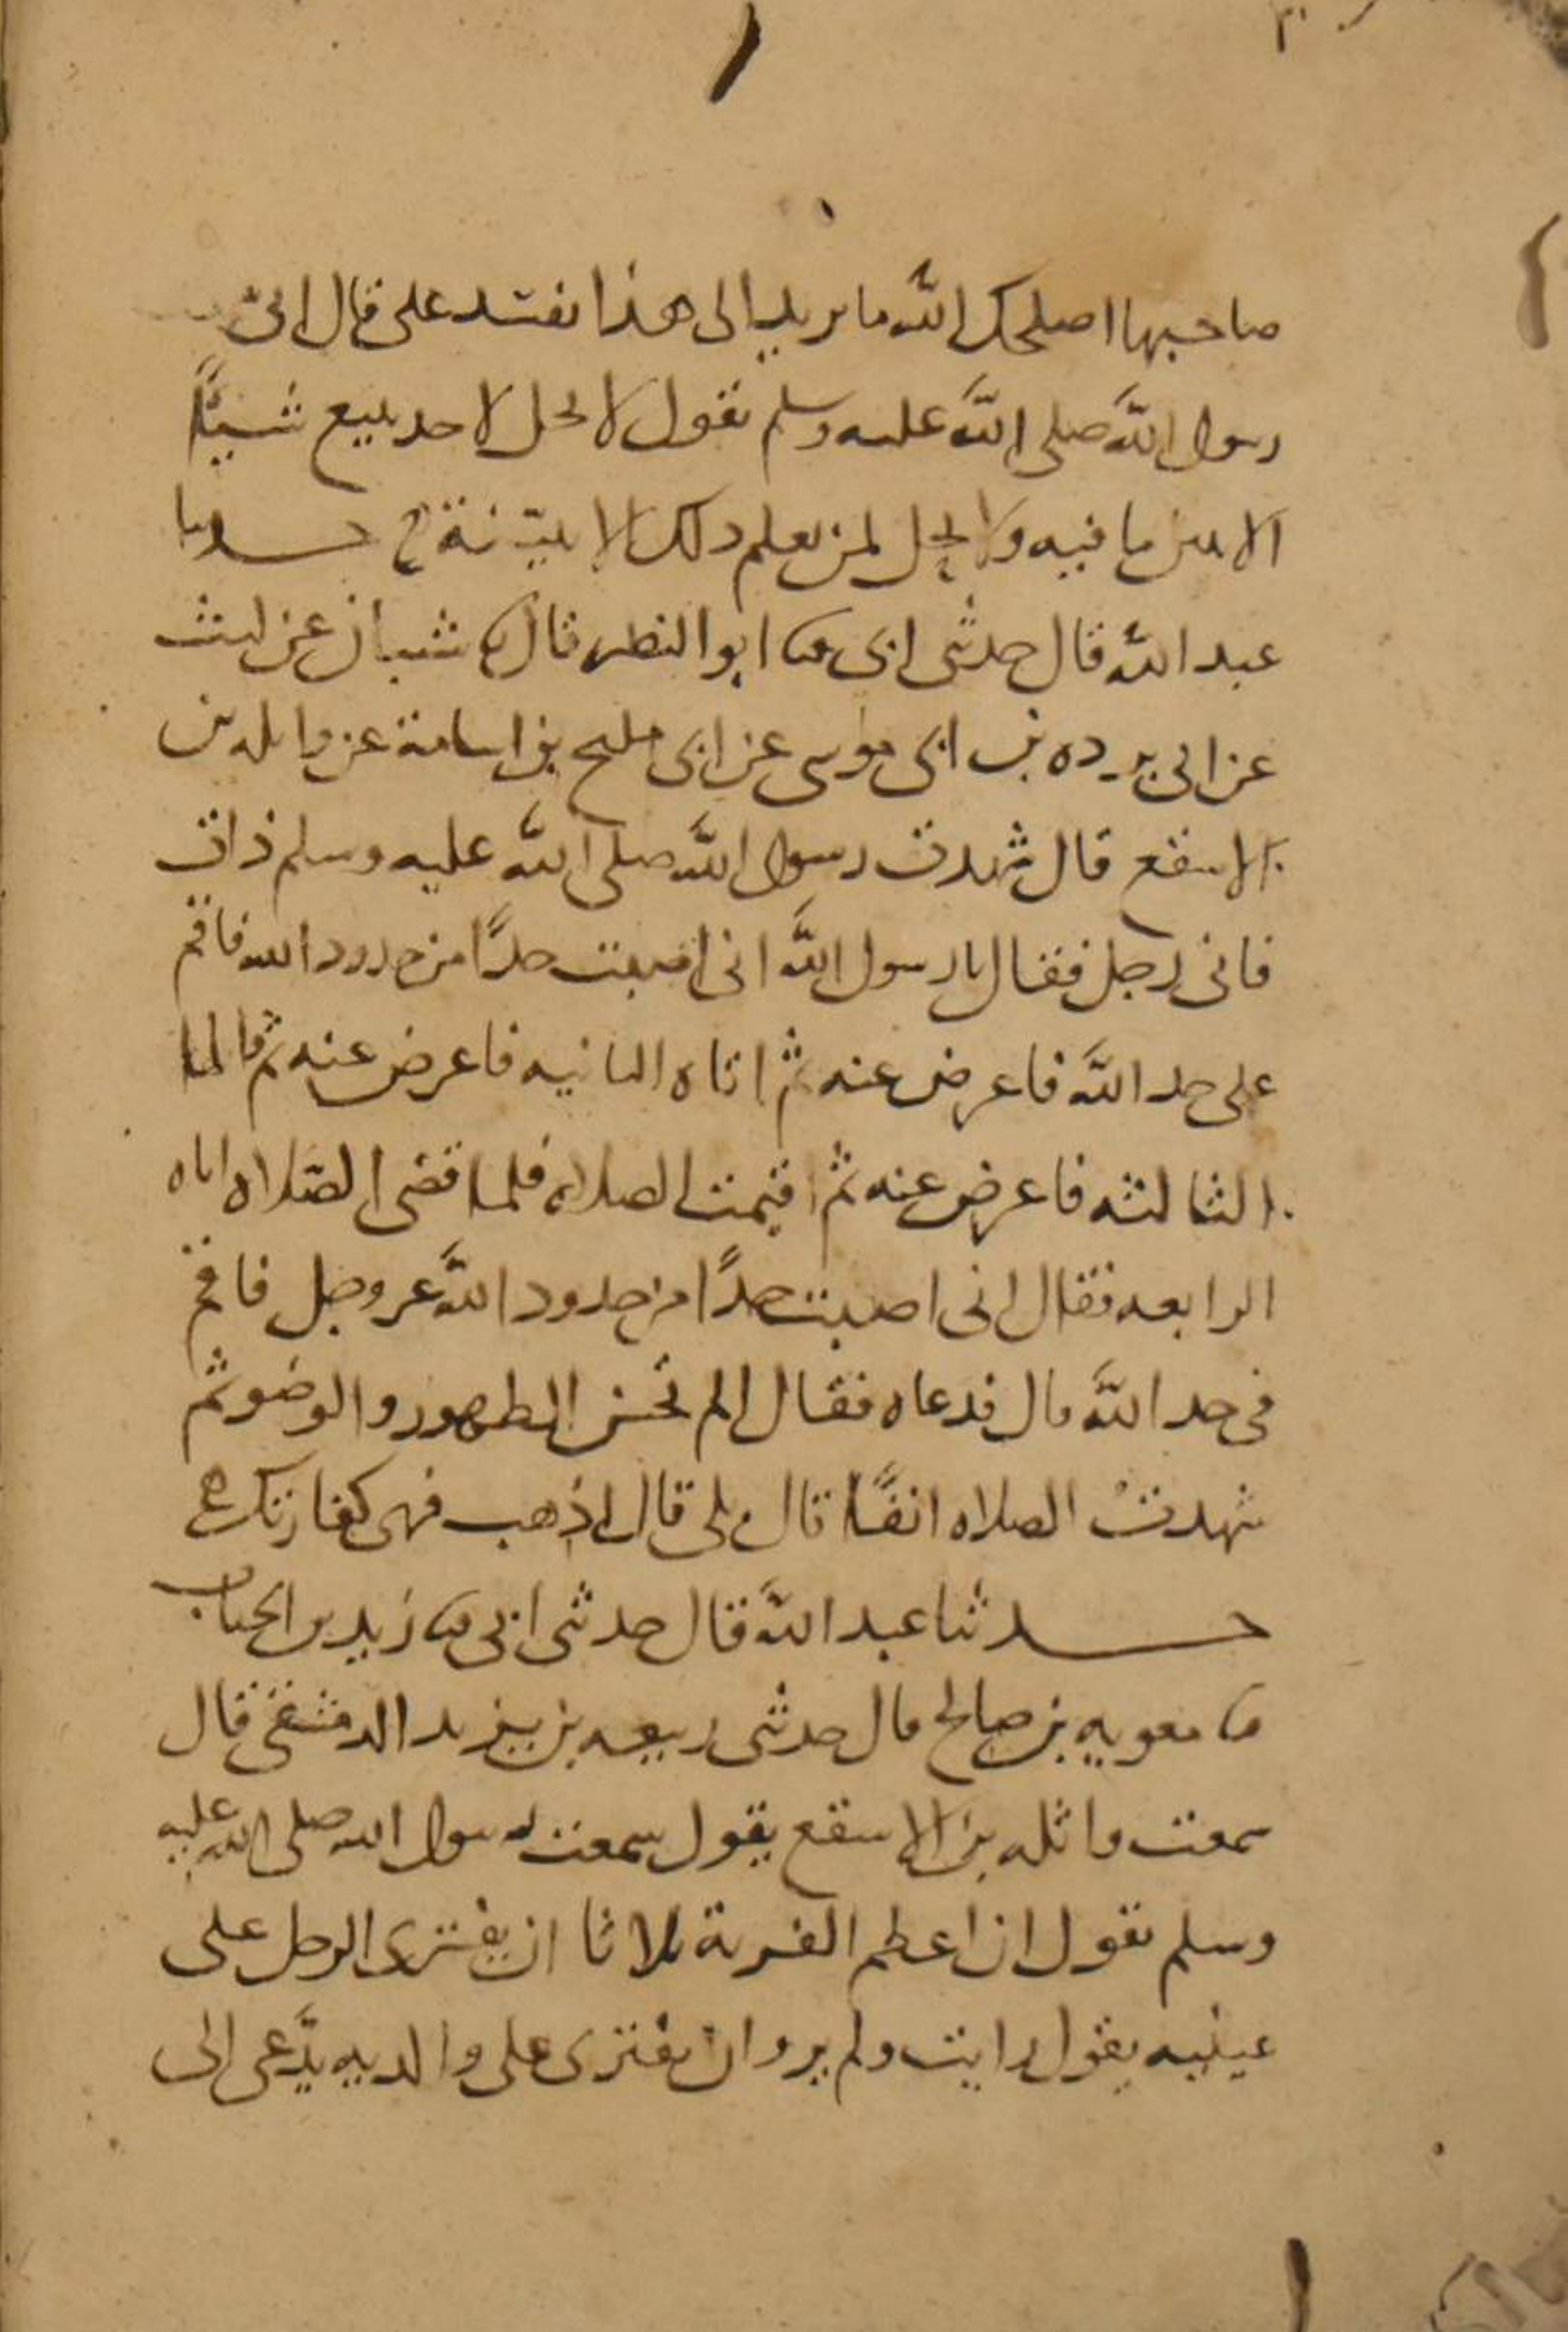 صاحبها اصلحك الله ما تريد الى هذا تفسد على قال انى
رسول الله صلى الله عليه وسلم يقول لا يحل لاحد يبيع شيئًا
الا يبين ما فيه ولا يحل لمن يعلم ذلك الا يبينه حدثنا
عبد الله قال حدثنى ابى ثنا ابو النضر قال ثنا شيبان عن ليث
عن ابى برده بن ابى موسى عن ابى مليح بن اسامة عن واثله بن
الاسقع قال شهدت رسول الله صلى الله عليه وسلم ذات
فاتى رجل فقال يا رسول الله انى اصبت حدًا من حدود الله فاقم
على حد الله فاعرض عنه ثم اتاه الثانيه فاعرض عنه ثم قالها
الثالثه فاعرض عنه ثم اقيمت الصلاه فلما قضى الصلاه اتاه
الرابعه فقال انى اصبت حدًا من حدود الله عز وجل فاقم
فى حد الله قال فدعاه فقال الم تحسن الطهور والوضو ثم
شهدت الصلاه انفًا قال بلى قال اذهب فهى كفارتك
حدثنا عبد الله قال حدثنى ابى ثنا زيد بن الحباب
ثنا معويه بن صالح قال حدثنى ربيعه بن يزيد الدمشقى قال
سمعت واثله بن الاسقع يقول سمعت رسول الله صلى الله عليه
وسلم يقول ان اعظم الفرية ثلاثا ان يفترى الرجل على
عينيه يقول رايت ولم ير وان يفترى على والديه يدَّعى الى